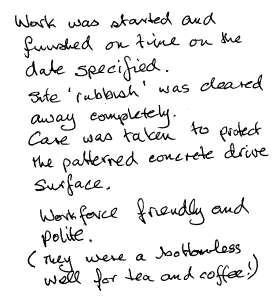 Work was started and
finished on time on the
date specified.
Site 'rubbish' was cleared
away completely.
Care was taken to protect
the patterned concrete drive
surface.
Workforce friendly and
polite.
(They were a bottomless
well for tea and coffee!)